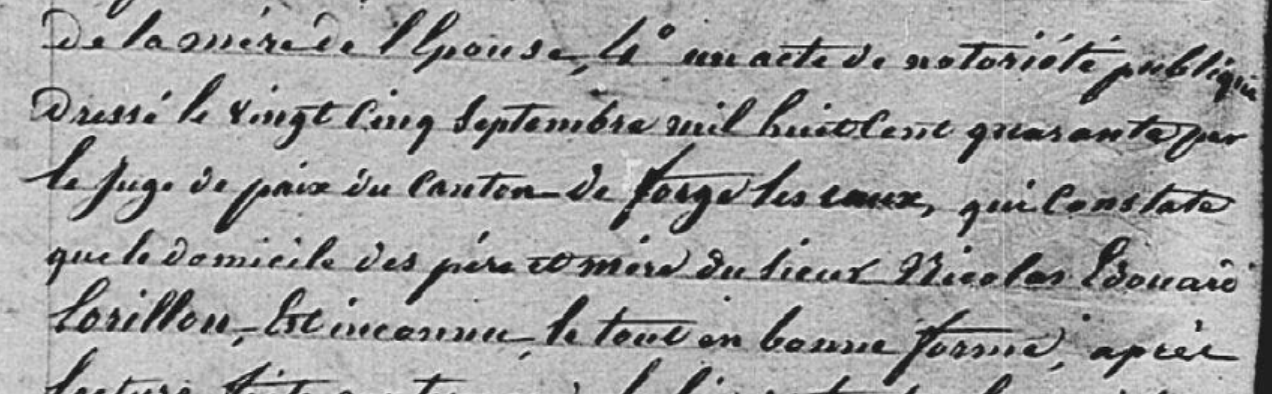 de la mère de l'Epouse, 4° un acte de notoriété publique
dressé le vingt cinq Septembre mil huit cent quarante par
le Juge de paix du Canton de forge les eaux, qui constate
que le domicile des père et mère du sieur Nicolas Edouard
Lorillon, Est inconnu, le tout en bonne forme, après
lecture